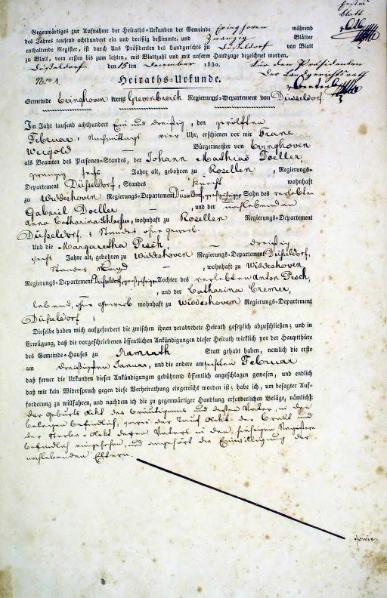 Gegenwärtiges zur Aufnahme der Heiraths-Urkunden der Gemeinde Evinghoven während
des Jahres tausend achthundert ein und dreißig bestimmte, und Zwanzig Blätter
enthaltende Register, ist durch Uns Präsidenten des Landgerichts zu Düsseldorf von Blatt
zu Blatt, vom ersten bis zum letzten, mit Blattzahl und mit unserm Handzuge bezeichnet worden.
Düsseldorf den December 1830. Für den Präsidenten
Nro 1. Der Landgerichtsrath
Heiraths-Urkunde.
Gemeinde Evinghoven Kreis Grevenbroich Regierungs-Departement von Düsseldorf
Im Jahr tausend achthundert Ein und dreißig, den zwölften
Februar, Nachmittags vier Uhr, erschienen vor mir Franz
Weipold Bürgermeister von Evinghoven
als Beamten des Personen-Standes, der Johann Mathias Doeller,
zwanzig sechs Jahre alt, gebohren zu Rosellen, Regierungs-
Departement Düsseldorf, Standes Knecht wohnhaft
zu Widdeshoven Regierungs-Departement Düsseldorf Sohn des verlebten
Gabriel Doeller, und der
Anna Catharina wohnhaft zu Rosellen Regierungs-Departement
Düsseldorf, Standes ohne Gewerb
Und die Margaretha Pesch, dreißig
Jahre alt, gebohren zu Widdeshoven Regierungs-Departement Düsseldorf,
Standes Magd, wohnhaft zu Widdeshoven,
Regierungs-Departement Düsseldorf Tochter des verlebten Anton Pesch,
, und der Catharina Cremer,
lebend, ohne Gewerb wohnhaft zu Widdeshoven Regierungs-Departement
Düsseldorf;
Dieselben haben mich aufgefordert die zwischen ihnen verabredete Heirath gesetzlich abzuschließen; und in
Erwägung, daß die vorgeschriebenen öffentlichen Ankündigungen dieser Heirath wirklich vor der Hauptthüre
des Gemeinde-Hauses zu Ramrath Statt gehabt haben, nämlich die erste
am dreißigsten Januar, und die andere am sechsten Februar
daß ferner die Urkunden dieser Ankündigungen gebührend öffentlich angeschlagen gewesen, und endlich
daß mir kein Widerspruch gegen diese Verheirathung eingereicht worden ist; habe ich, um besagter Auf-
forderung zu willfahren, und nachdem ich die zu gegenwärtiger Handlung erforderlichen Beläge, nämlich:
der Geburts Akt des Bräutigams und dessen Vaters,
befindlich, sowie der Tauf Akt der Braut und
der Sterbe Akt deren Vaters in den hiesigen Register
befindlich eingesehen, und die Einwilligung der
Eltern.